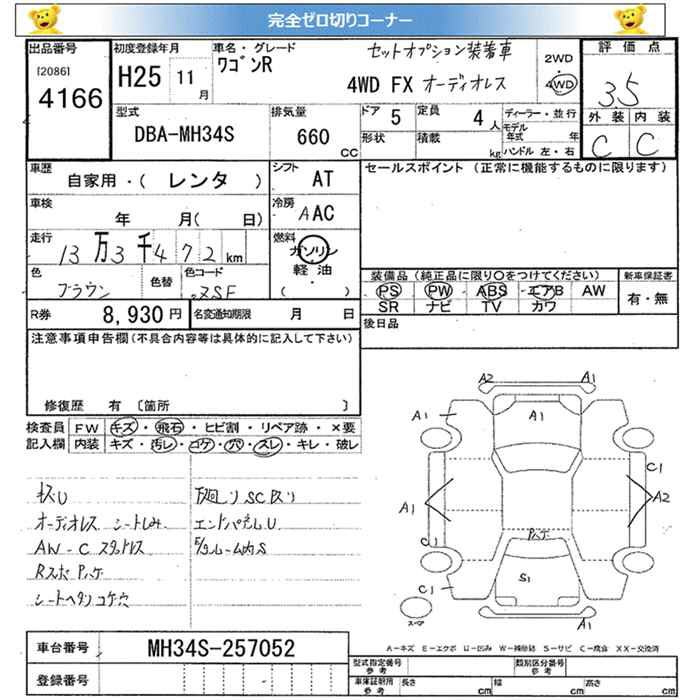 完全ゼロ切りコーナー
出品番号 初度登録年月 車名・グレード セットオプション装着車 2WD 評価点
[2086] H25 11月 ワゴンR 4WD FX オーディオレス 4WD 3.5
4166
型式 排気量 ドア 5 定員 4人 ディーラー・並行 外装 内装
DBA-MH34S 660cc 形状 積載 kg モデル年式 年 C C
ハンドル 左・右
車歴 シフト セールスポイント (正常に機能するものに限ります)
自家用・( レンタ ) AT
車検 年 月( 日) 冷房 AAC
走行 13万3千472km 燃料 ガソリン
軽油
( ・ )
色 ブラウン 色替 色コード ZSF
装備品 (純正品に限り○をつけてください) 新車保証書
PS PW ABS エアB AW 有・無
SR ナビ TV カワ
R券 8,930円 名変通知期限 月 日 後日品
注意事項申告欄(不具合内容等は具体的に記入して下さい)
修復歴 有 〔箇所 〕
検査員 FW キズ・飛石・ヒビ割・リペア跡・×要
記入欄 内装 キズ・汚レ・コゲ・穴・スレ・キレ・破レ
キズU
オーディオレス シートしみ
AW-C スタットレス
シートヘタリ コゲ穴
下廻りリSCスリ
A2 A1
A1 A1
C1
A1 A2
C1
C1 S1 C1
A1
A-キズ E-エクボ U-凹み W-補修跡 S-サビ C-腐食 XX-交換済
車台番号 MH34S-257052
登録番号
型式指定番号 参考 類別区分番号 参考
車庫証明用 参考 長さ cm 幅 cm 高さ cm